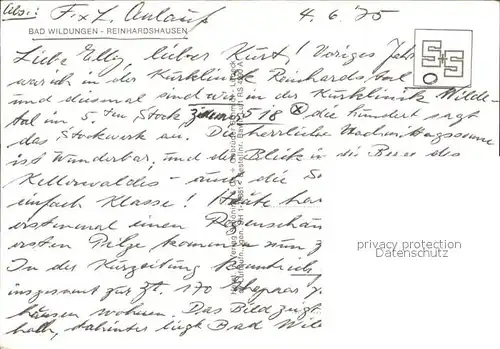 Abs.: F. x L. Anlauf 4.6.75
BAD WILDUNGEN - REINHARDSHAUSEN
Liebe Elly, lieber Kurt! Voriges Jahr
war ich in der Kurklinik Reinhardstal
und diesmal sind wir in der Kurklinik Wilde-
tal im 5. ten Stock Zimmer 518 die hundert sagt
das Stockwerk an. Die herrliche Nachmittagssonne
ist Wunderbar, und der Blick in die Berge des
Kellerwaldes - auch die So
einfach Klasse! Heute
erstenmal einen Regenschauer
ersten Pilze kommen nun z
In der Kurzeitung
insgesamt zur Zt. 170 Ehepaare
häusen wohnen. Das Bild zeigt
dahinter liegt Bad Wild
privacy protection
Datenschutz